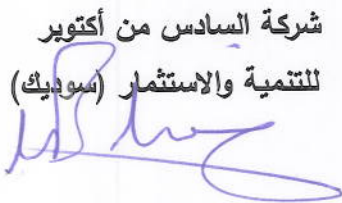 شركة السادس من أكتوبر
للتنمية والاستثمار (سوديك)